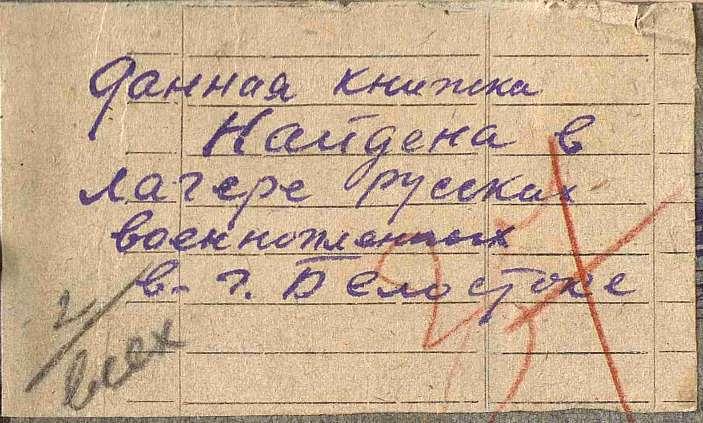 Данная книжка
Найдена в
лагере русских
военнопленных
в- г. Белостоке
2/всех